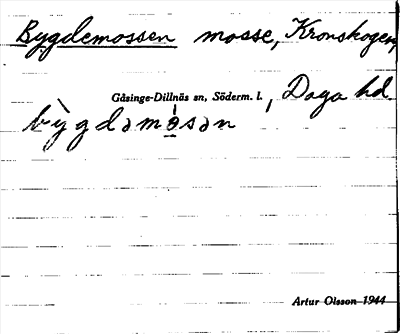 Bygdemossen mosse, Kronskogen,
Gåsinge-Dillnäs sn, Söderm. l., Daga hd.
bỳgdəmósən
Artur Olsson 1944